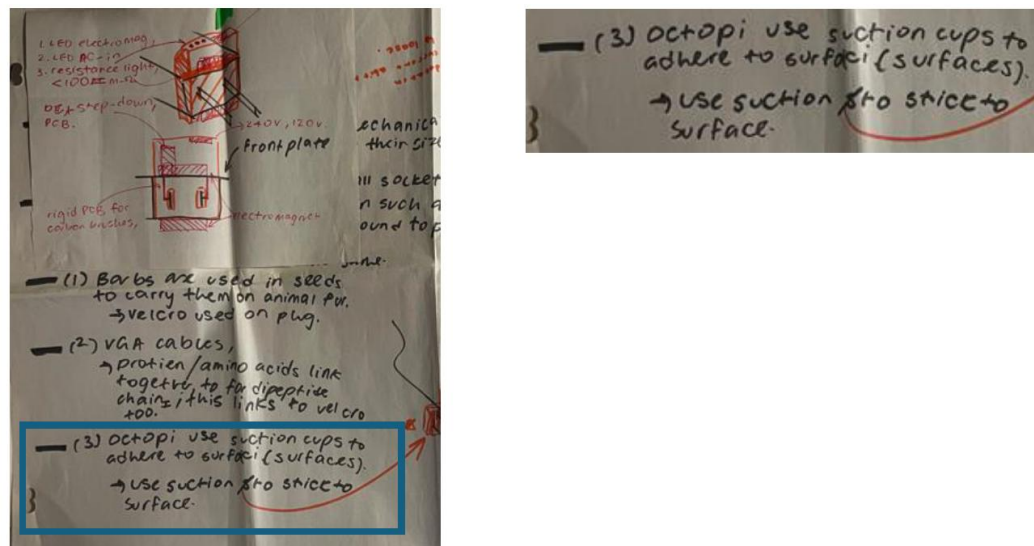 1. LED electromag,
2. LED AC-in
3. resistance light,
step-down,
PCB.
240V, 120V.
front plate
rigid PCB for
carbon brushes,
electromagnet
echanica
their size
socket
n such a
ound to p
(1) Barbs are used in seeds
to carry them on animal fur.
→ velcro used on plug.
(2) VGA cables,
→ protien/amino acids link
together to for dipeptide
chains, this links to velcro
too.
(3) Octopi use suction cups to
adhere to surfaci (surfaces).
→ use suction to stick to
surface.
(3) Octopi use suction cups to
adhere to surfaci (surfaces).
→ use suction to stick to
surface.